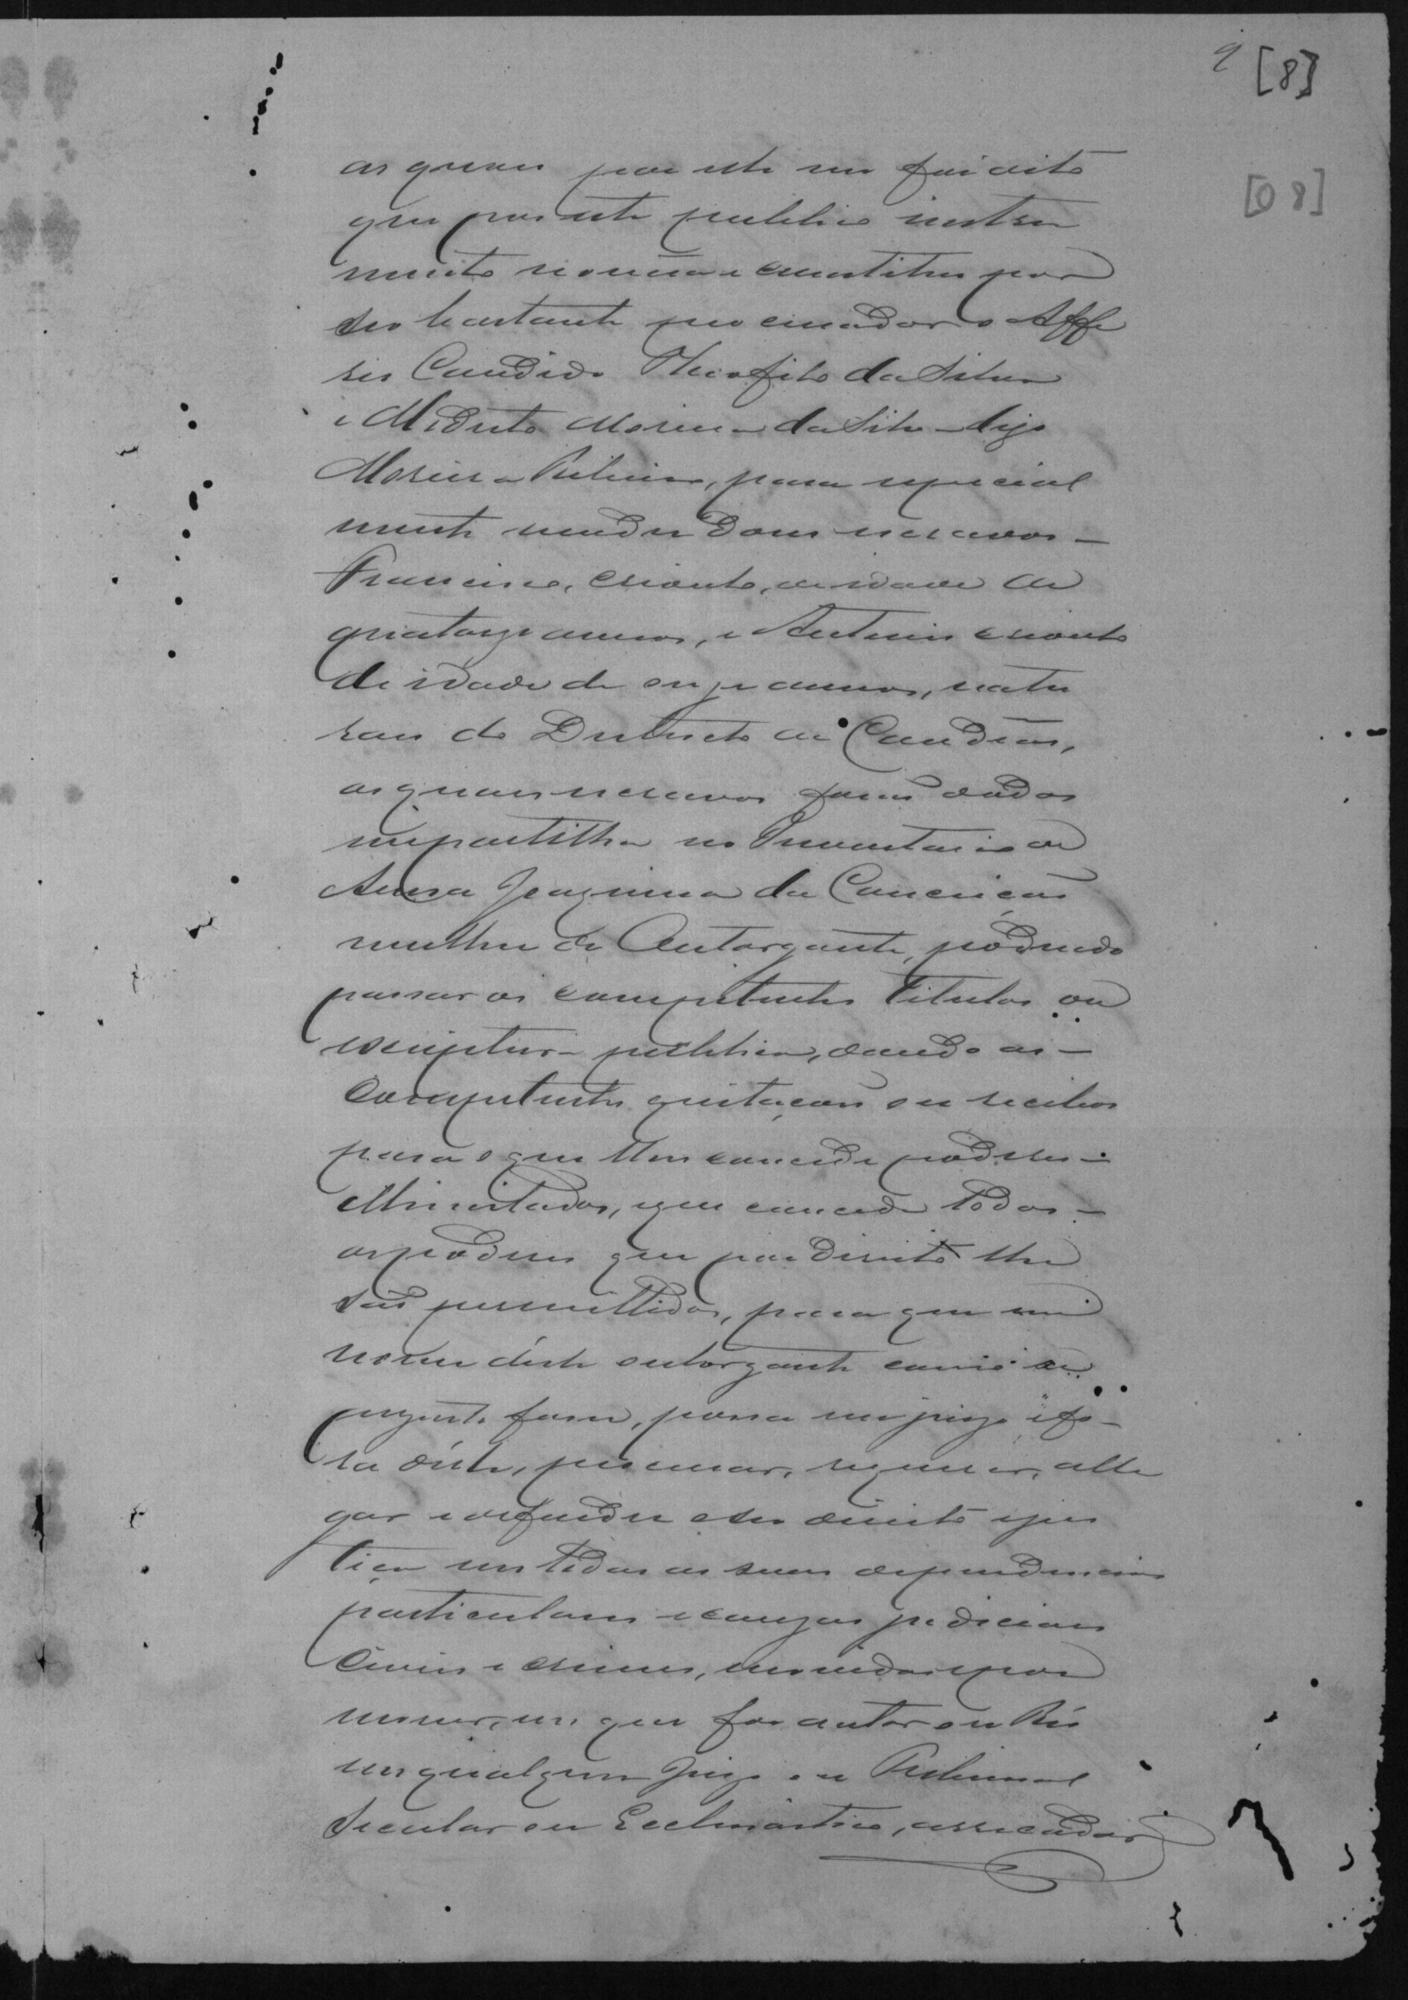 9 [8]
[08]
as quaes por este me foi dito
que por este publico instru
mento nomea e constitue por
seo bastante procurador o Alffe
res Candido Theofilo da Silva
e Modesto Moreira da Silva digo
Moreira Ribeiro, para especial
mente vender dous escravos –
Francisco, crioulo, de idade de
quatorze annos, e Antonio crioulo
de idade de onze annos, natu
raes do Districto de Candeias,
os quaes escravos forão dados
em partilha no Inventario de
Anna Joaquina da Conceição
mulher do Outorgante, podendo
passar os competentes titulos ou
escriptura publica, dando as –
competentes quitações ou recibos
para o que lhes concede poderes –
illimitados, e que concede todos –
os poderes que por direito lhe
são permittidos, para que em
nome deste outorgante como se
prezente fosse, possa em juizo e fo –
ra delle, procurar, requerer, alle
gar e defender o seu direito e jus
tiça em todas as suas dependencias
particulares e cauzas judiciaes
civeis e crimes, movidas e por
mover, em que for autor ou Réo
em qualquer Juizo ou Tribunal
Secular ou Ecclesiastico, arrecadar